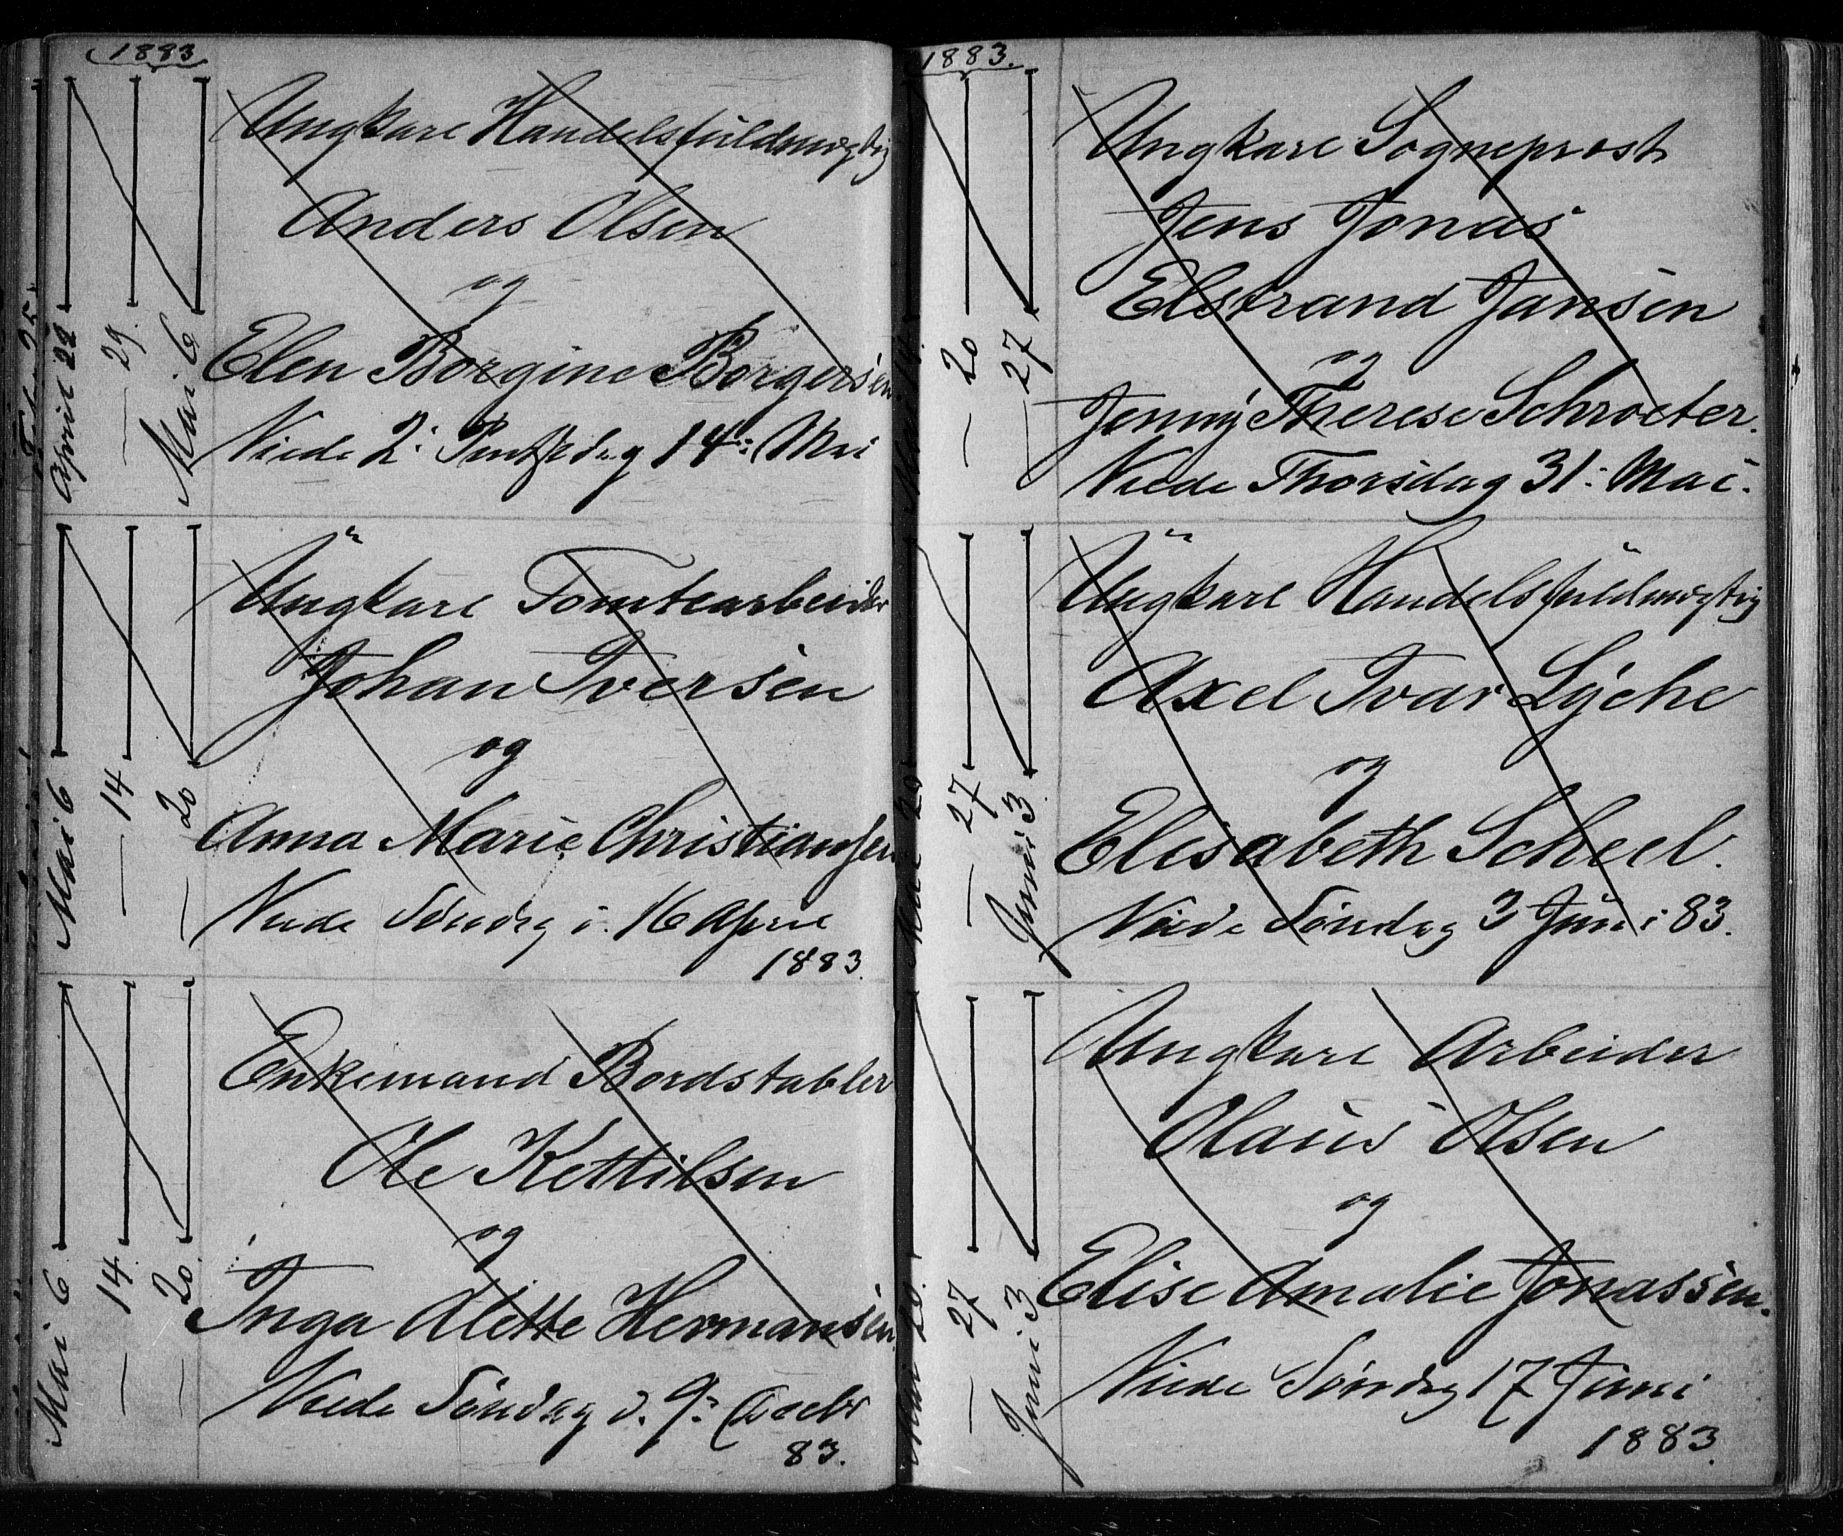 1883
April 22
— 29.
Mai 6
Ungkarl Handelsfuldmægtig
Anders Olsen
og
Elen Borgine Borgersen
Viede 2: Pintsedag 14: Mai
Mai 6
— 14
— 20
Ungkarl Tomtearbeider
Johan Iversen
og
Anna Marie Christiansen
Viede Søndag 16 April
1883.
Mai 6.
— 14.
— 20.
Enkemand Bordstabler
Ole Kettilsen
og
Inga Alette Hermansen.
Viede Søndag d. 9:
83.
1883.
— 20
— 27
Ungkarl Sogneprest
Jens Jonas
Elstrand Jansen
og
Jenny Therese Schroeter.
Viede Thorsdag 31: Mai.
Mai 20
— 27
Juni 3
Ungkarl Handelsfuldmægtig
Axel Ivar Lyche
og
Elisabeth Scheel.
Viede Søndag 3 Juni 83.
Mai 20.
— 27
Juni 3
Ungkarl Arbeider
Olaus Olsen
og
Elise Amalie Jonassen.
Viede Søndag 17 Juni
1883.